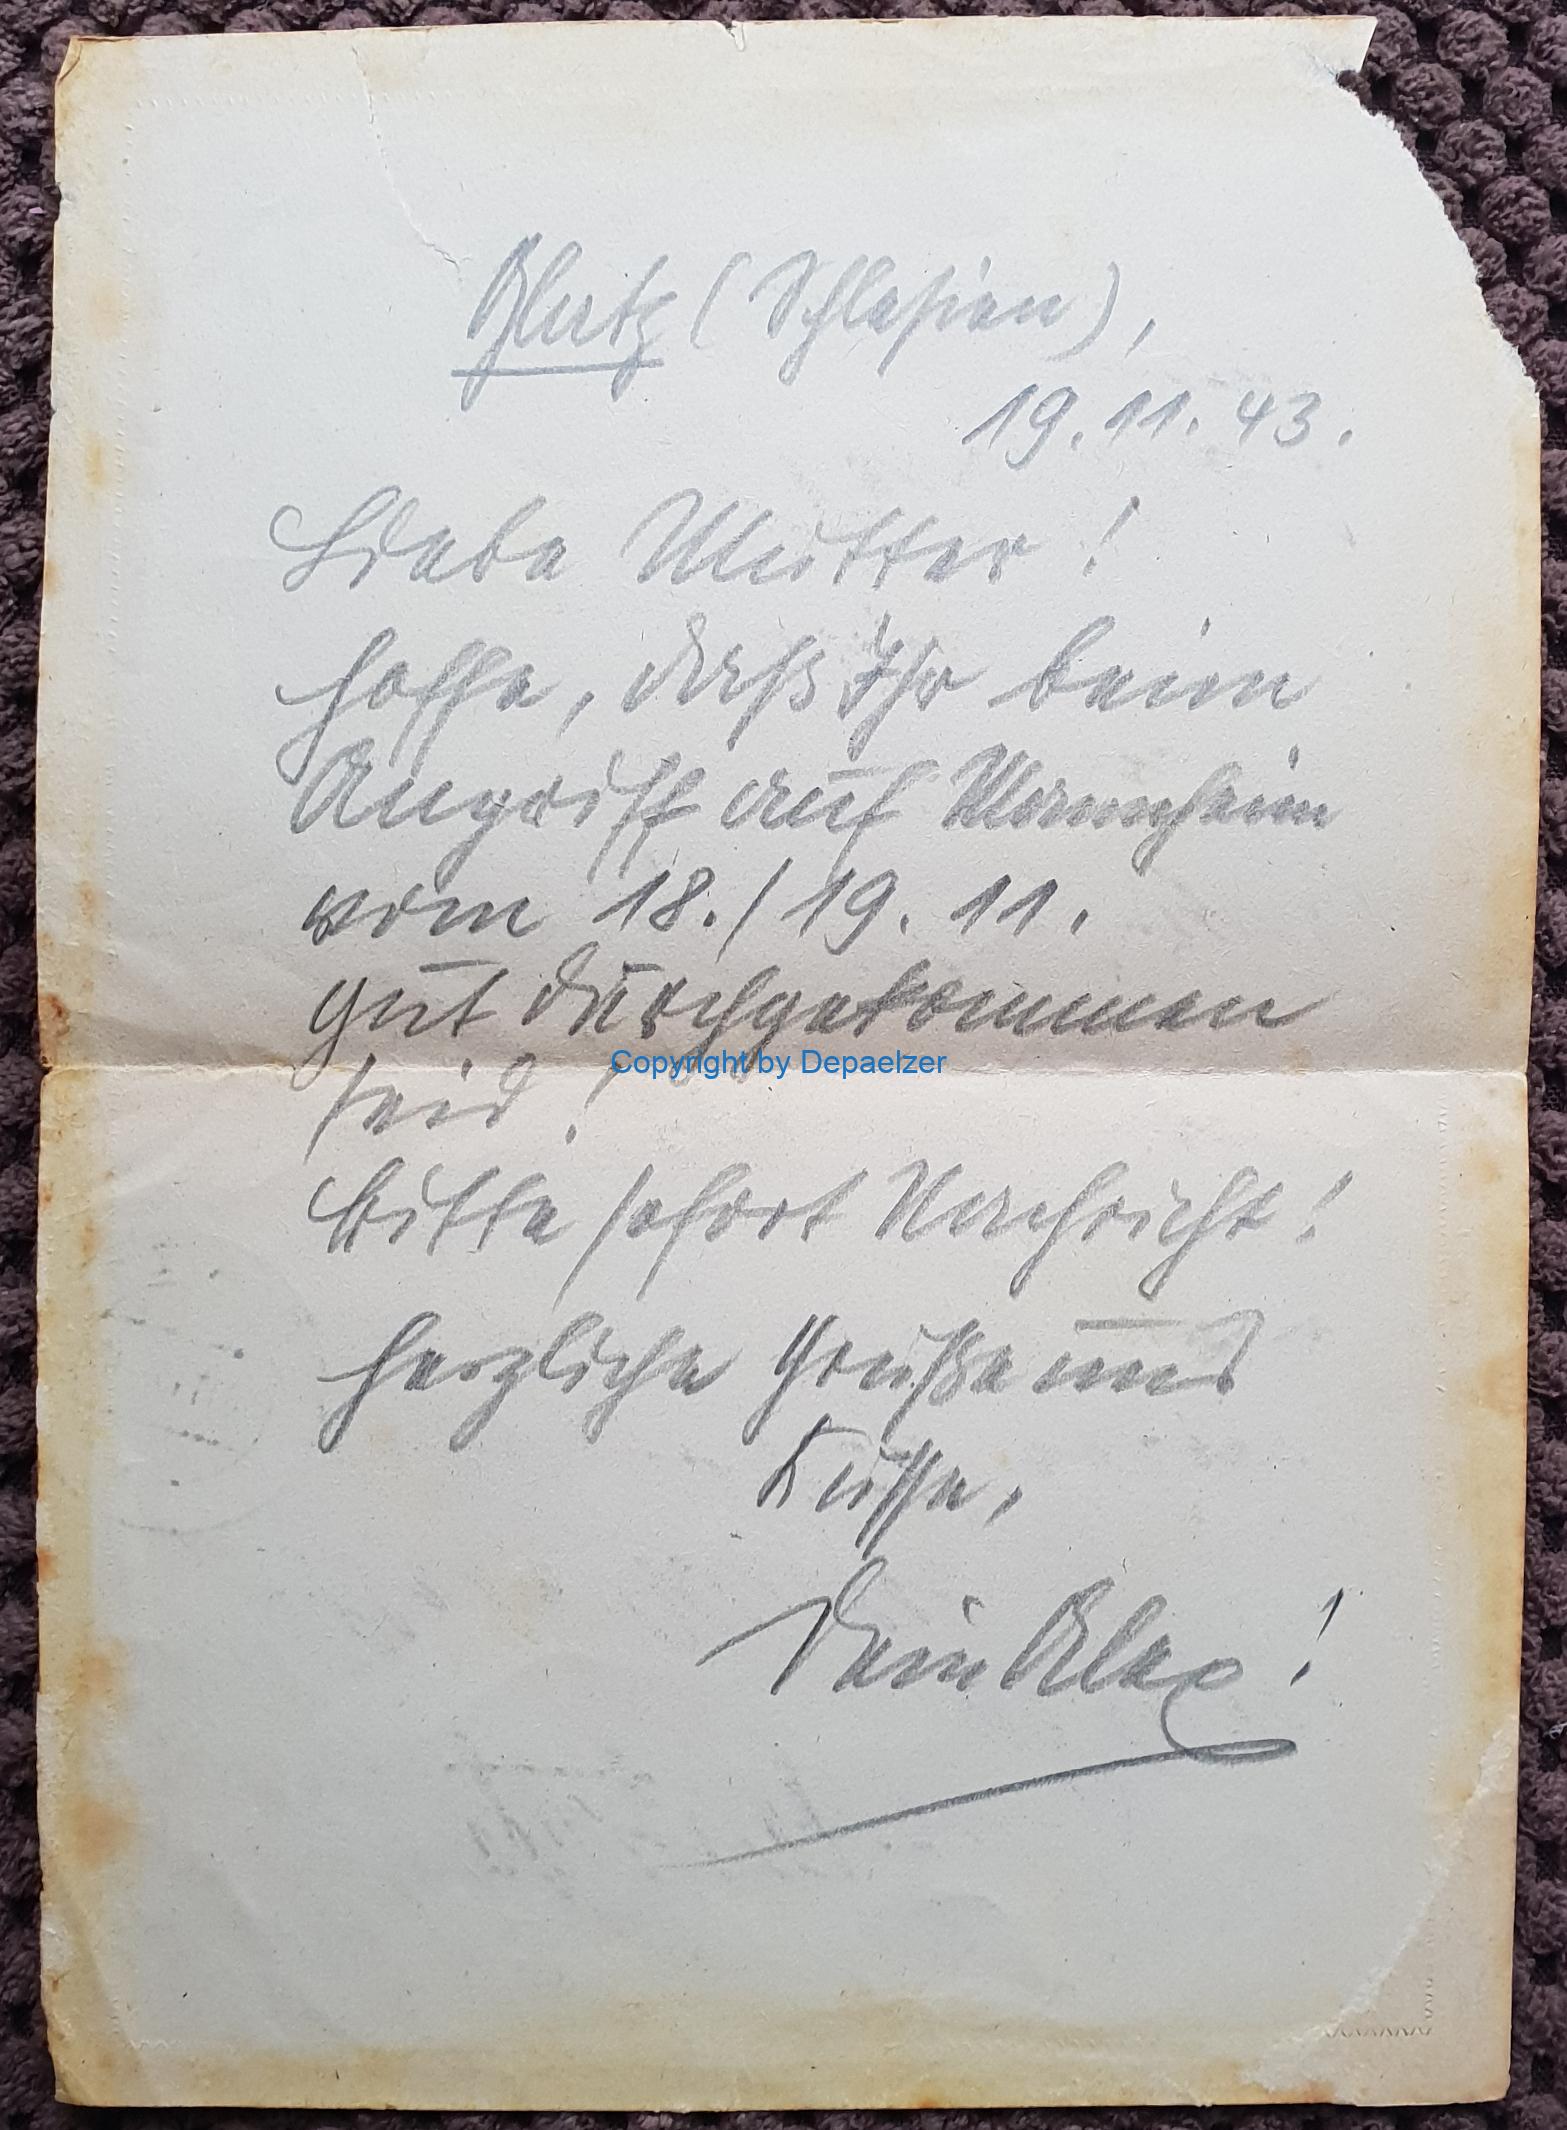 Glatz (Schlesien),
19.11.43.
Liebe Mutter!
Hoffe, daß Ihr beim
Angriff auf Mannheim
vom 18./19. 11.
gut durchgekommen
seid!
Copyright by Depaelzer
Bitte sofort Nachricht!
Herzliche Grüße und
Küsse,
Dein